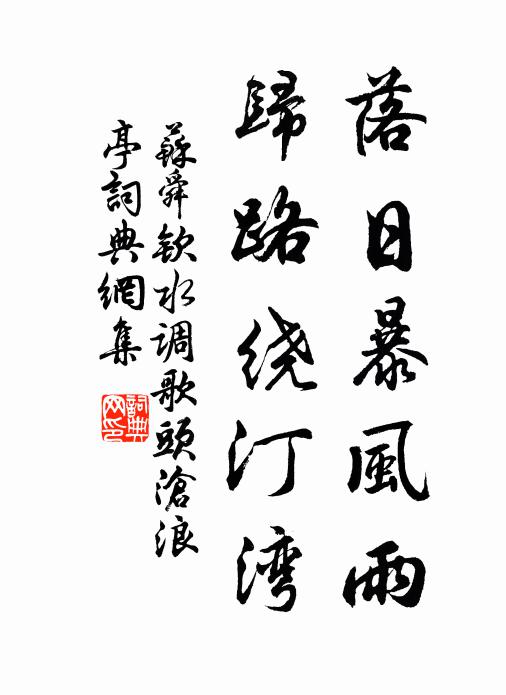 落日暴風雨
歸路绕汀湾
蘇舜欽水调歌頭滄浪
亭詞典網集
詞典網印